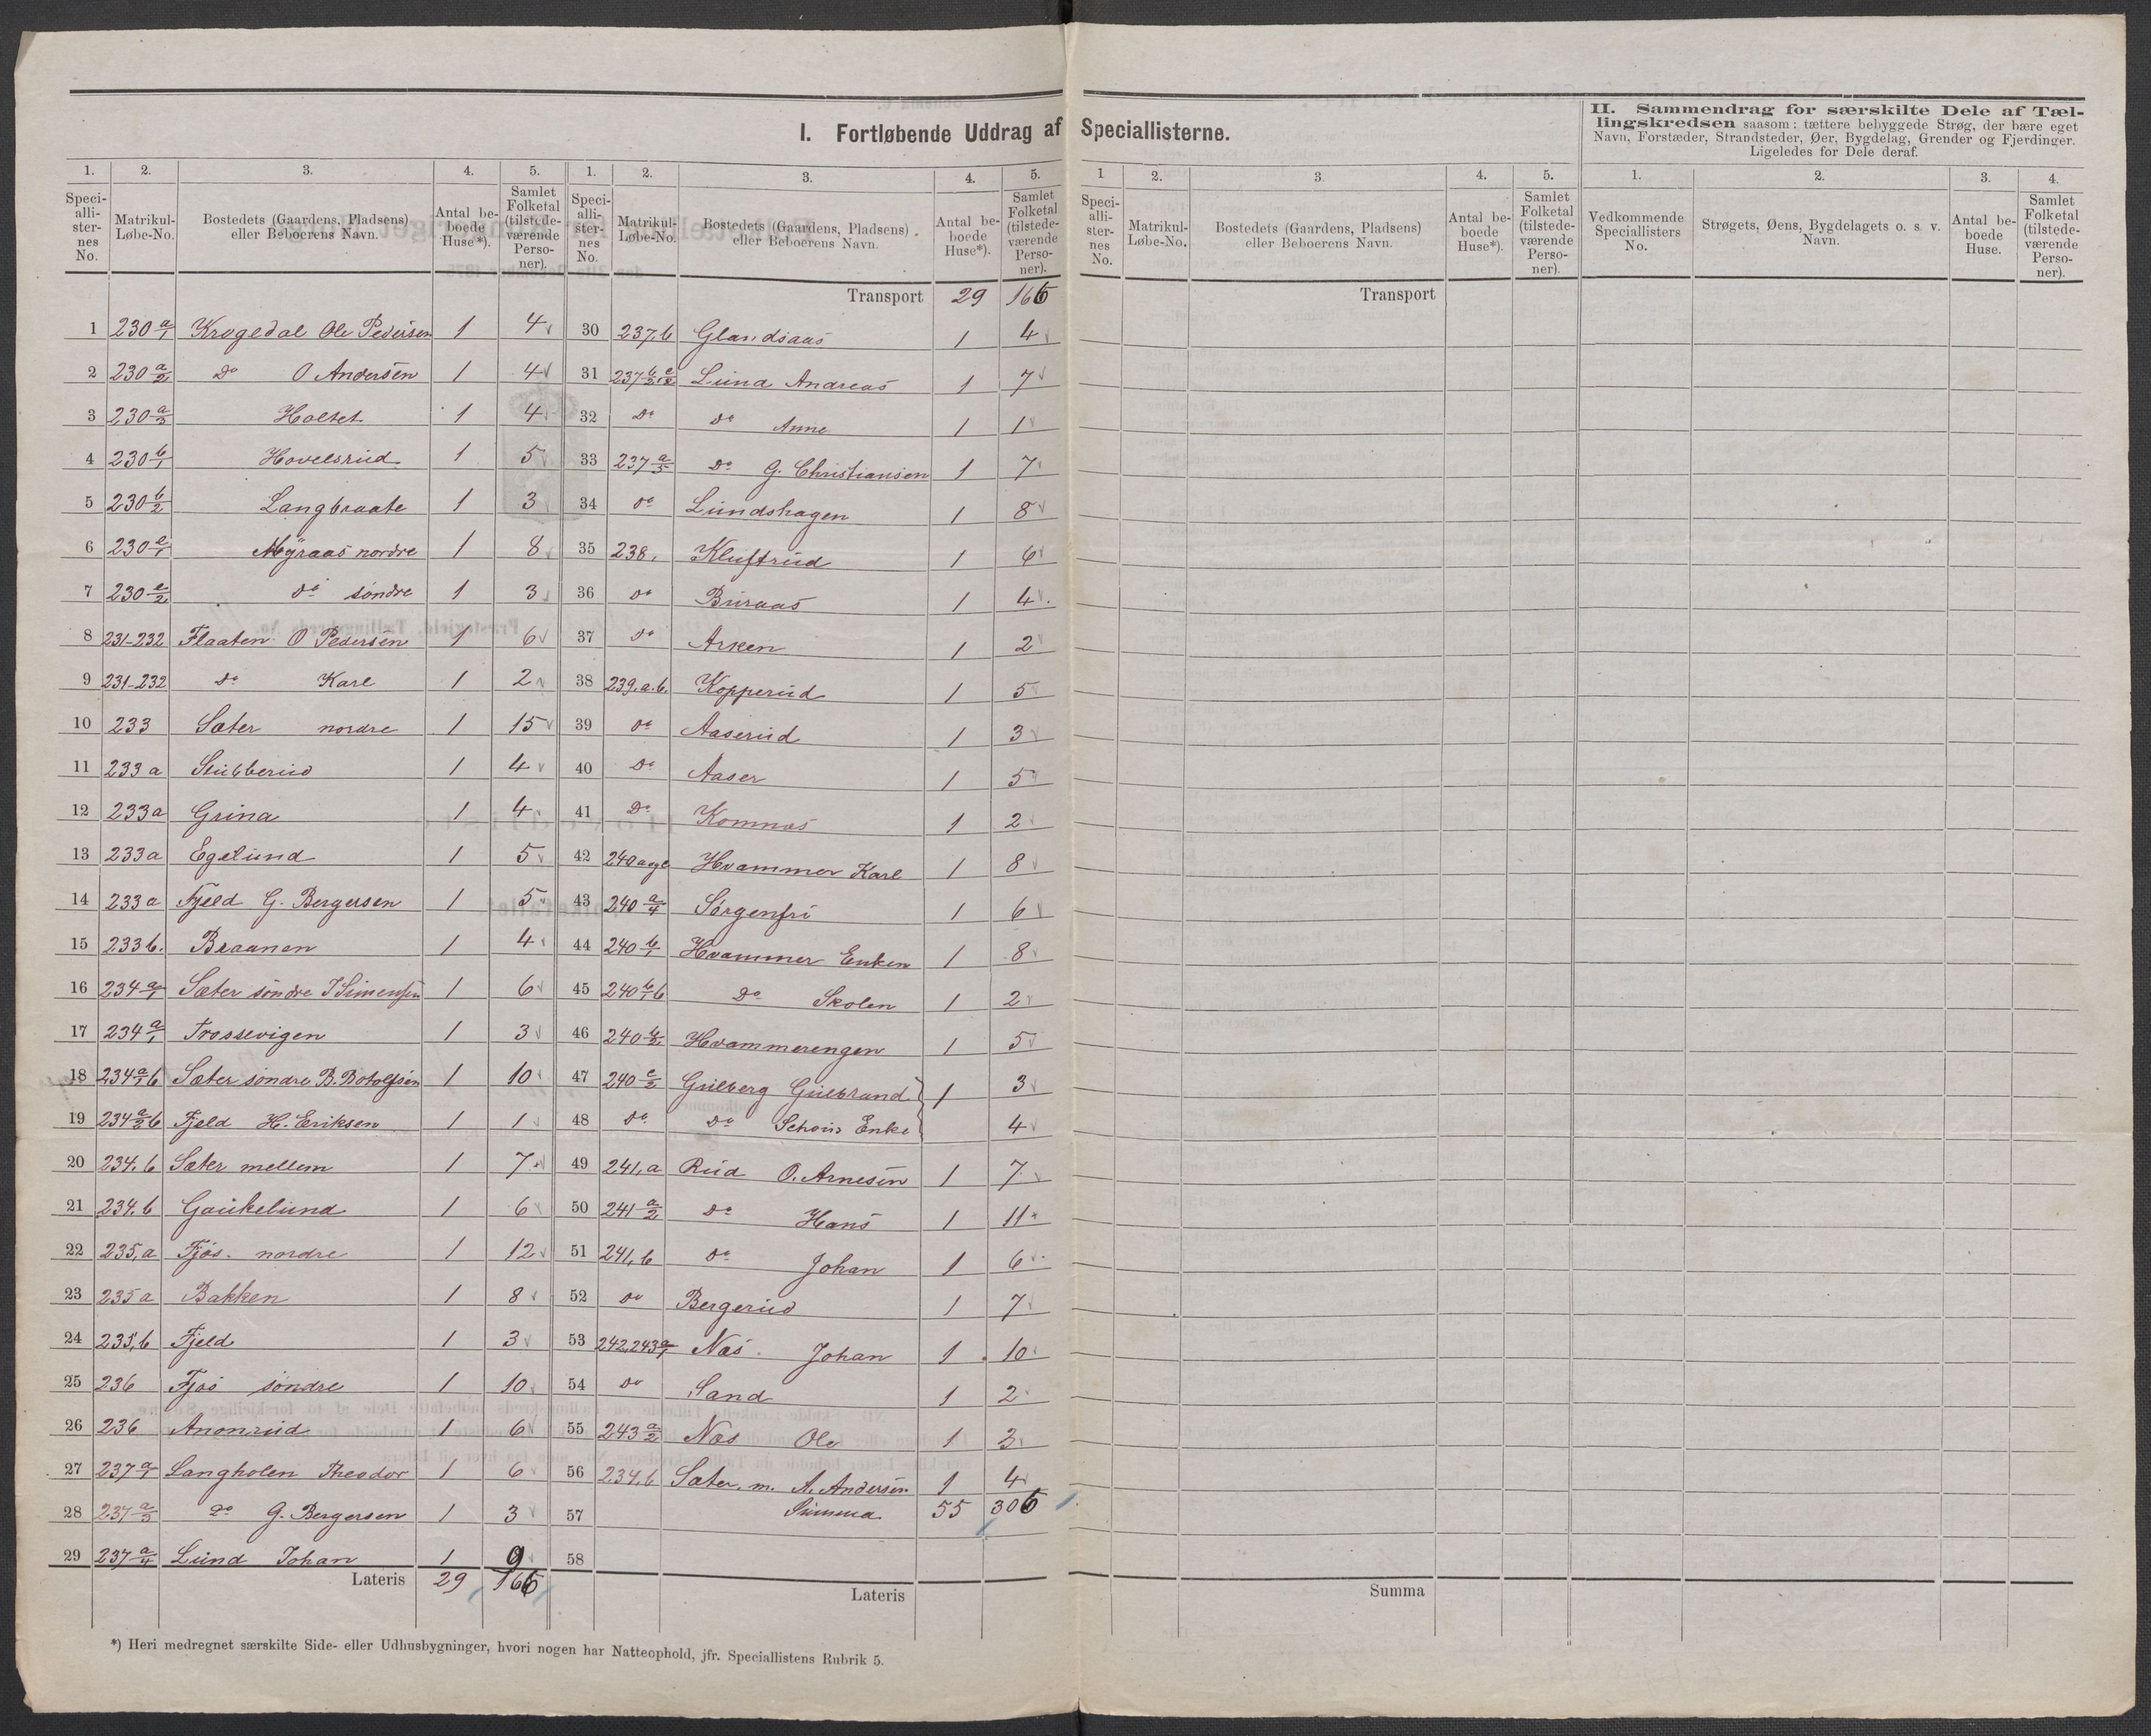 I. Fortløbende Uddrag af Speciallisterne.
II. Sammendrag for særskilte Dele af Tæl-
lingskredsen saasom: tættere bebyggede Strøg, der bære eget
Navn, Forstæder, Strandsteder, Øer, Bygdelag, Grender og Fjerdinger.
Ligeledes for Dele deraf.
1. 2. 3. 4. 5. 1. 2. 3. 4. 5. 1 2. 3. 4. 5. 1. 2. 3. 4.
Speci-
alli-
ster-
nes
No.
Matrikul-
Løbe-No.
Bostedets (Gaardens, Pladsens)
eller Beboerens Navn.
Antal be-
boede
Huse*).
Samlet
Folketal
(tilstede-
værende
Perso-
ner).
Speci-
alli-
ster-
nes
No.
Matrikul-
Løbe-No.
Bostedets (Gaardens, Pladsens)
eller Beboerens Navn.
Antal be-
boede
Huse*).
Samlet
Folketal
(tilstede-
værende
Perso-
ner).
Speci-
alli-
ster-
nes
No.
Matrikul-
Løbe-No.
Bostedets (Gaardens, Pladsens)
eller Beboerens Navn.
Antal be-
boede
Huse*).
Samlet
Folketal
(tilstede-
værende
Perso-
ner).
Vedkommende
Speciallisters
No.
Strøgets, Øens, Bygdelagets o. s. v.
Navn.
Antal be-
boede
Huse.
Samlet
Folketal
(tilstede-
værende
Perso-
ner).
1 230 a/1 Krogedal Ole Pedersen 1 4
2 230 a/2 Do O Andersen 1 4
3 230 a/3 Holtet 1 4
4 230 b/1 Hovelsrud 1 5
5 230 b/2 Langbraate 1 3
6 230 c/1 Myraas nordre 1 8
7 230 c/2 do søndre 1 3
8 231-232 Flaaten O Pedersen 1 6
9 231-232 Do Karl 1 2
10 233 Sæter nordre 1 15
11 233 a Stubberud 1 4
12 233 a Grina 1 4
13 233 a Egelund 1 5
14 233 a Fjeld G. Bergersen 1 5
15 233 b. Braanen 1 4
16 234 a/1 Sæter søndre J Simensen 1 6
17 234 a/1 Trossevigen 1 3
18 234 a/1 b Sæter søndre B. Botolfsen 1 10
19 234 a/2 b Fjeld H. Eriksen 1 1
20 234. b Sæter mellem 1 7
21 234. b Gaukelund 1 6
22 235, a Fjøs nordre 1 12
23 235 a Bakken 1 8
24 235, b Fjeld 1 3
25 236 Fjøs søndre 1 10
26 236 Anonrud 1 6
27 237 a/1 Langholen Theodor 1 6
28 237 a/3 Do G. Bergersen 1 3
29 237 a/4 Lund Johan 1 9
Lateris 29 166
Transport 29 166
30 237, b Glandsaas 1 4
31 237 b/2, c/2 Lund Andreas 1 7
32 Do Do Anne 1 1
33 237 a/5 Do G. Christiansen 1 7
34 do Lundshagen 1 8
35 238, Kluftrud 1 6
36 do Buraas 1 4
37 do Asken 1 2
38 239. a. b. Kopperud 1 5
39 do Aaserud 1 3
40 Do Aaser 1 5
41 Do Komnæs 1 2
42 240 Hvammer Karl 1 8
43 240 a/4 Sorgenfri 1 6
44 240 b/1 Hvammer Enken 1 8
45 240 b/1 b Do Skolen 1 2
46 240 b/2 Hvammerengen 1 5
47 240 c/2 Gulberg Gulbrand 1 3
48 do Do Enke 4
49 241, a Rud O. Arnesen 1 7
50 241 a/2 Do Hans 1 11
51 241, b do Johan 1 6
52 do Bergerud 1 7
53 242, 243 a/1 Næs Johan 1 10
54 do Sand 1 2
55 243 a/2 Næs Ole 1 3
56 234, b Sæter m. A. Andersen 1 4
57 Summa 55 306
58
Lateris
Transport
Summa
*) Heri medregnet særskilte Side- eller Udhusbygninger, hvori nogen har Natteophold, jfr. Speciallistens Rubrik 5.